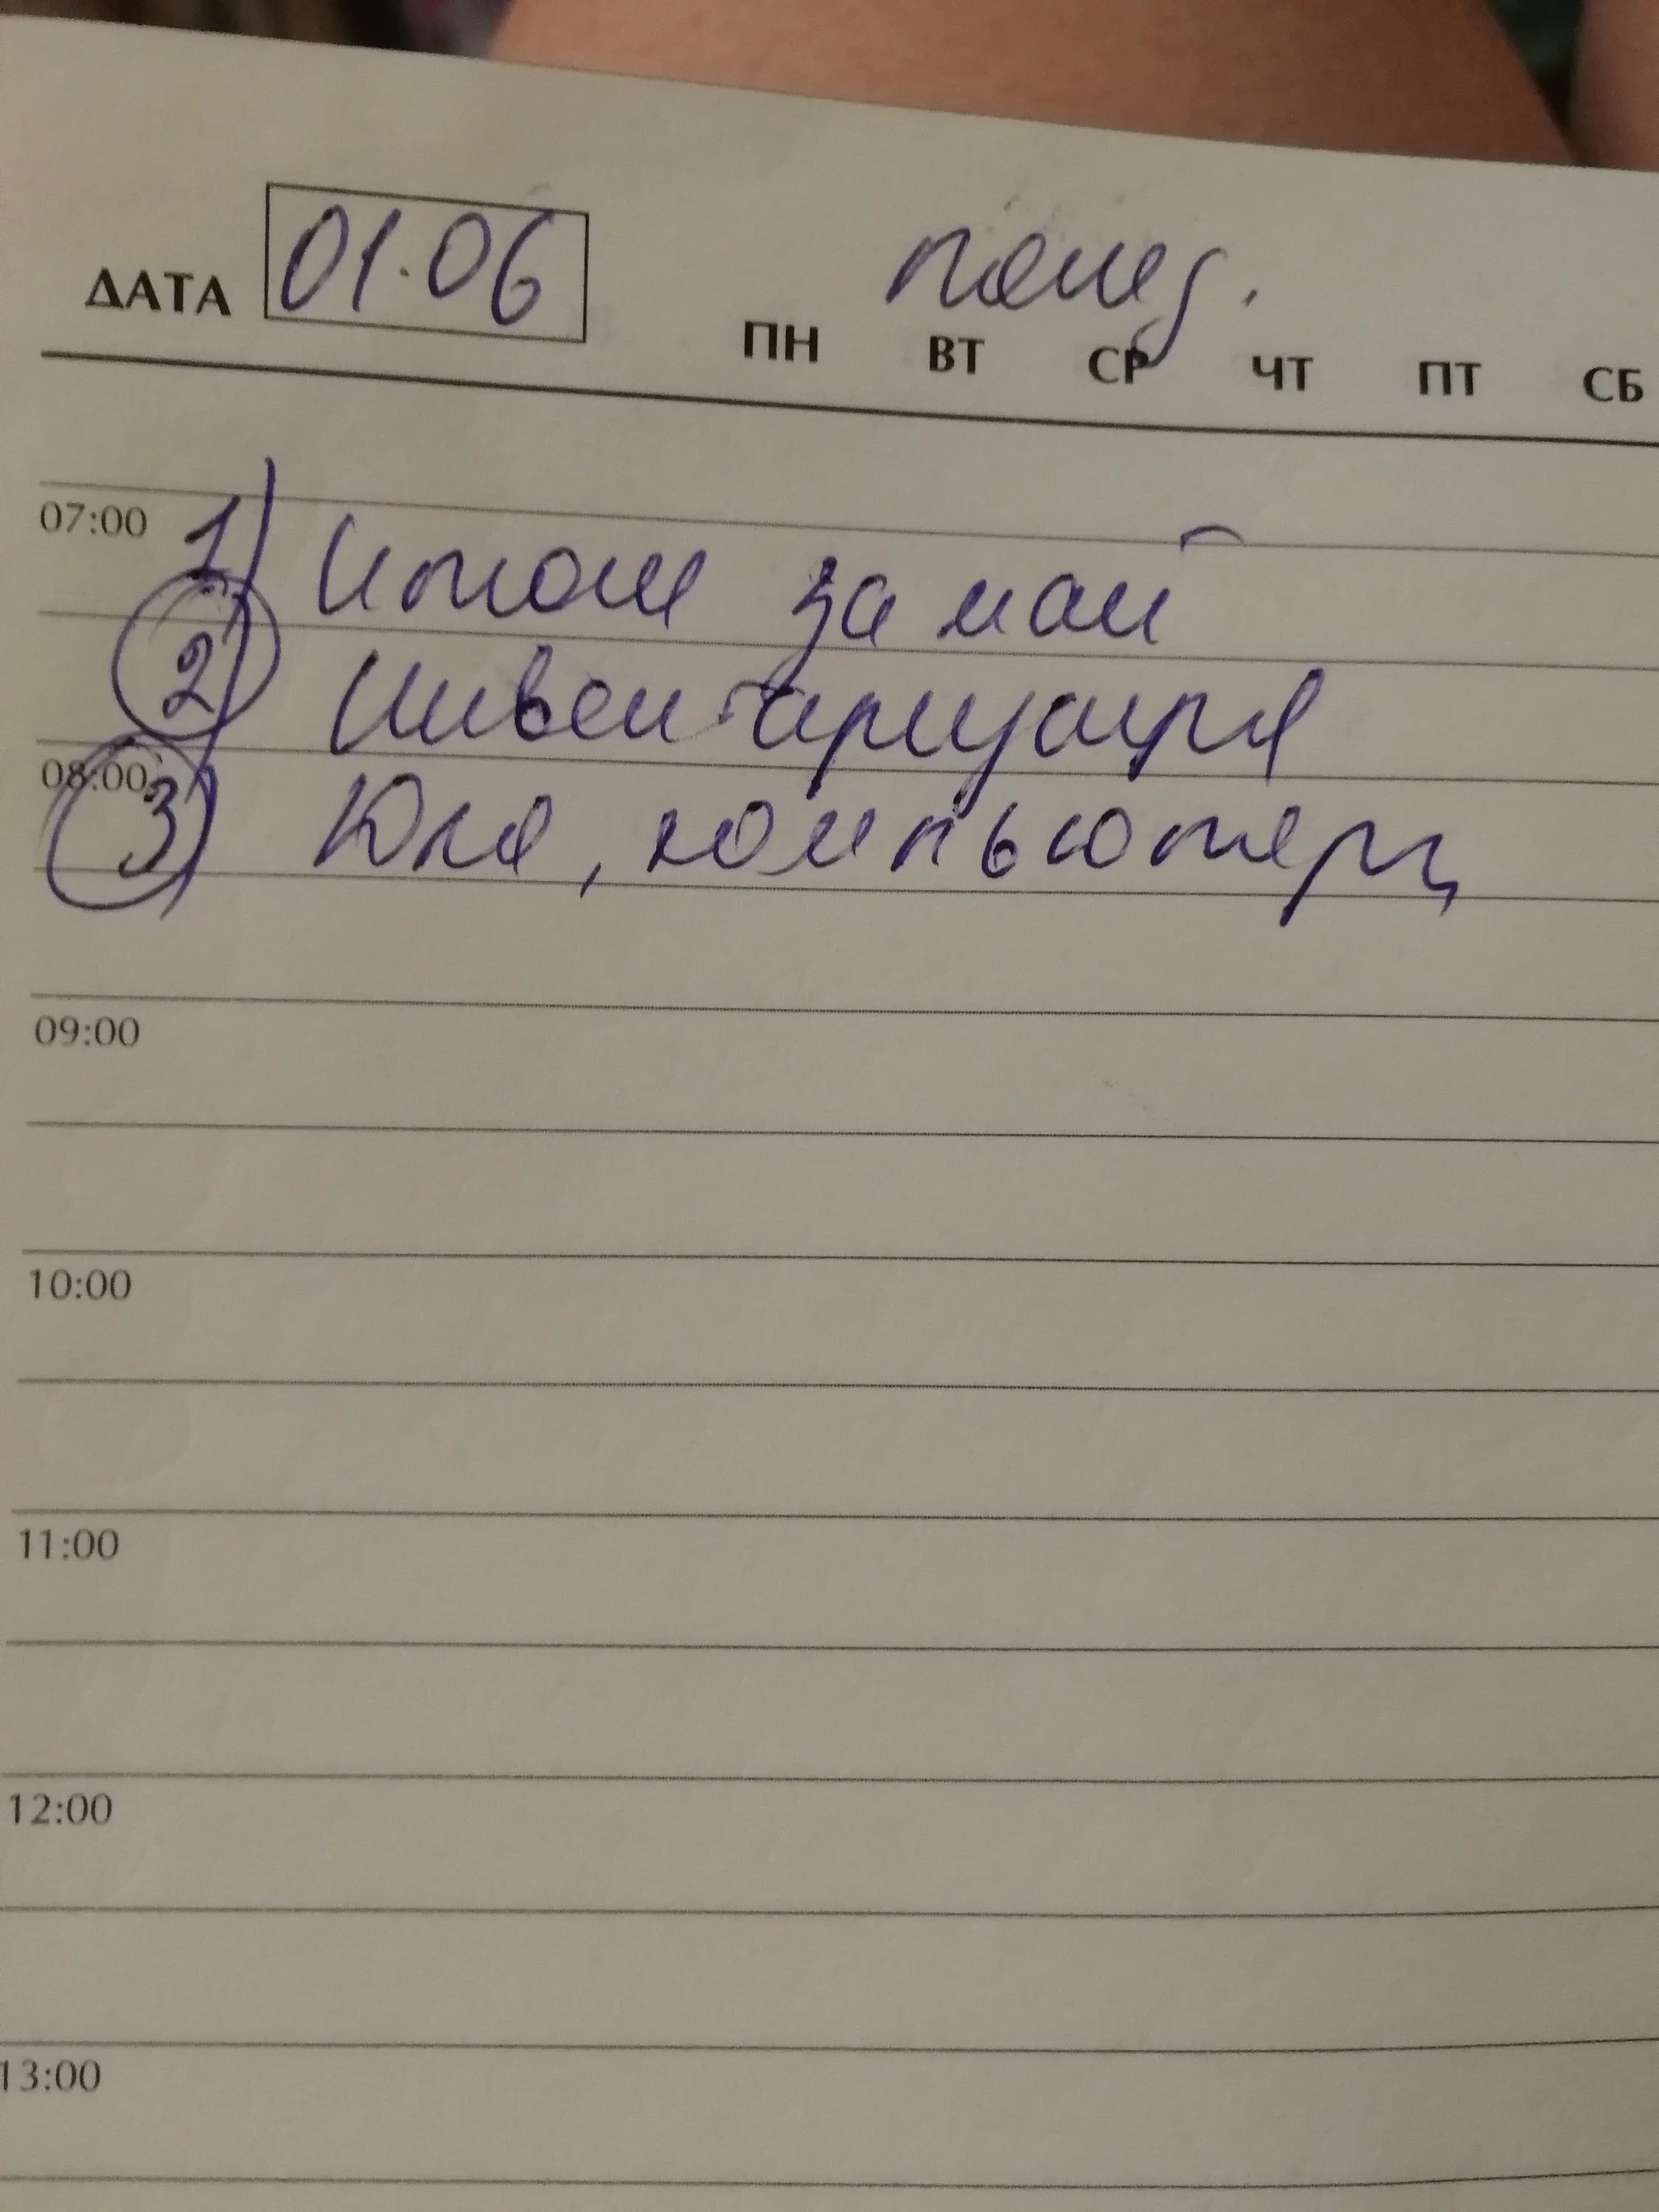 ДАТА 01.06 понед.
ПН ВТ СР ЧТ ПТ СБ
07:00 1) Итоги за май
2) Инвентаризация
08:00 3) Юля, компьютер
09:00
10:00
11:00
12:00
13:00